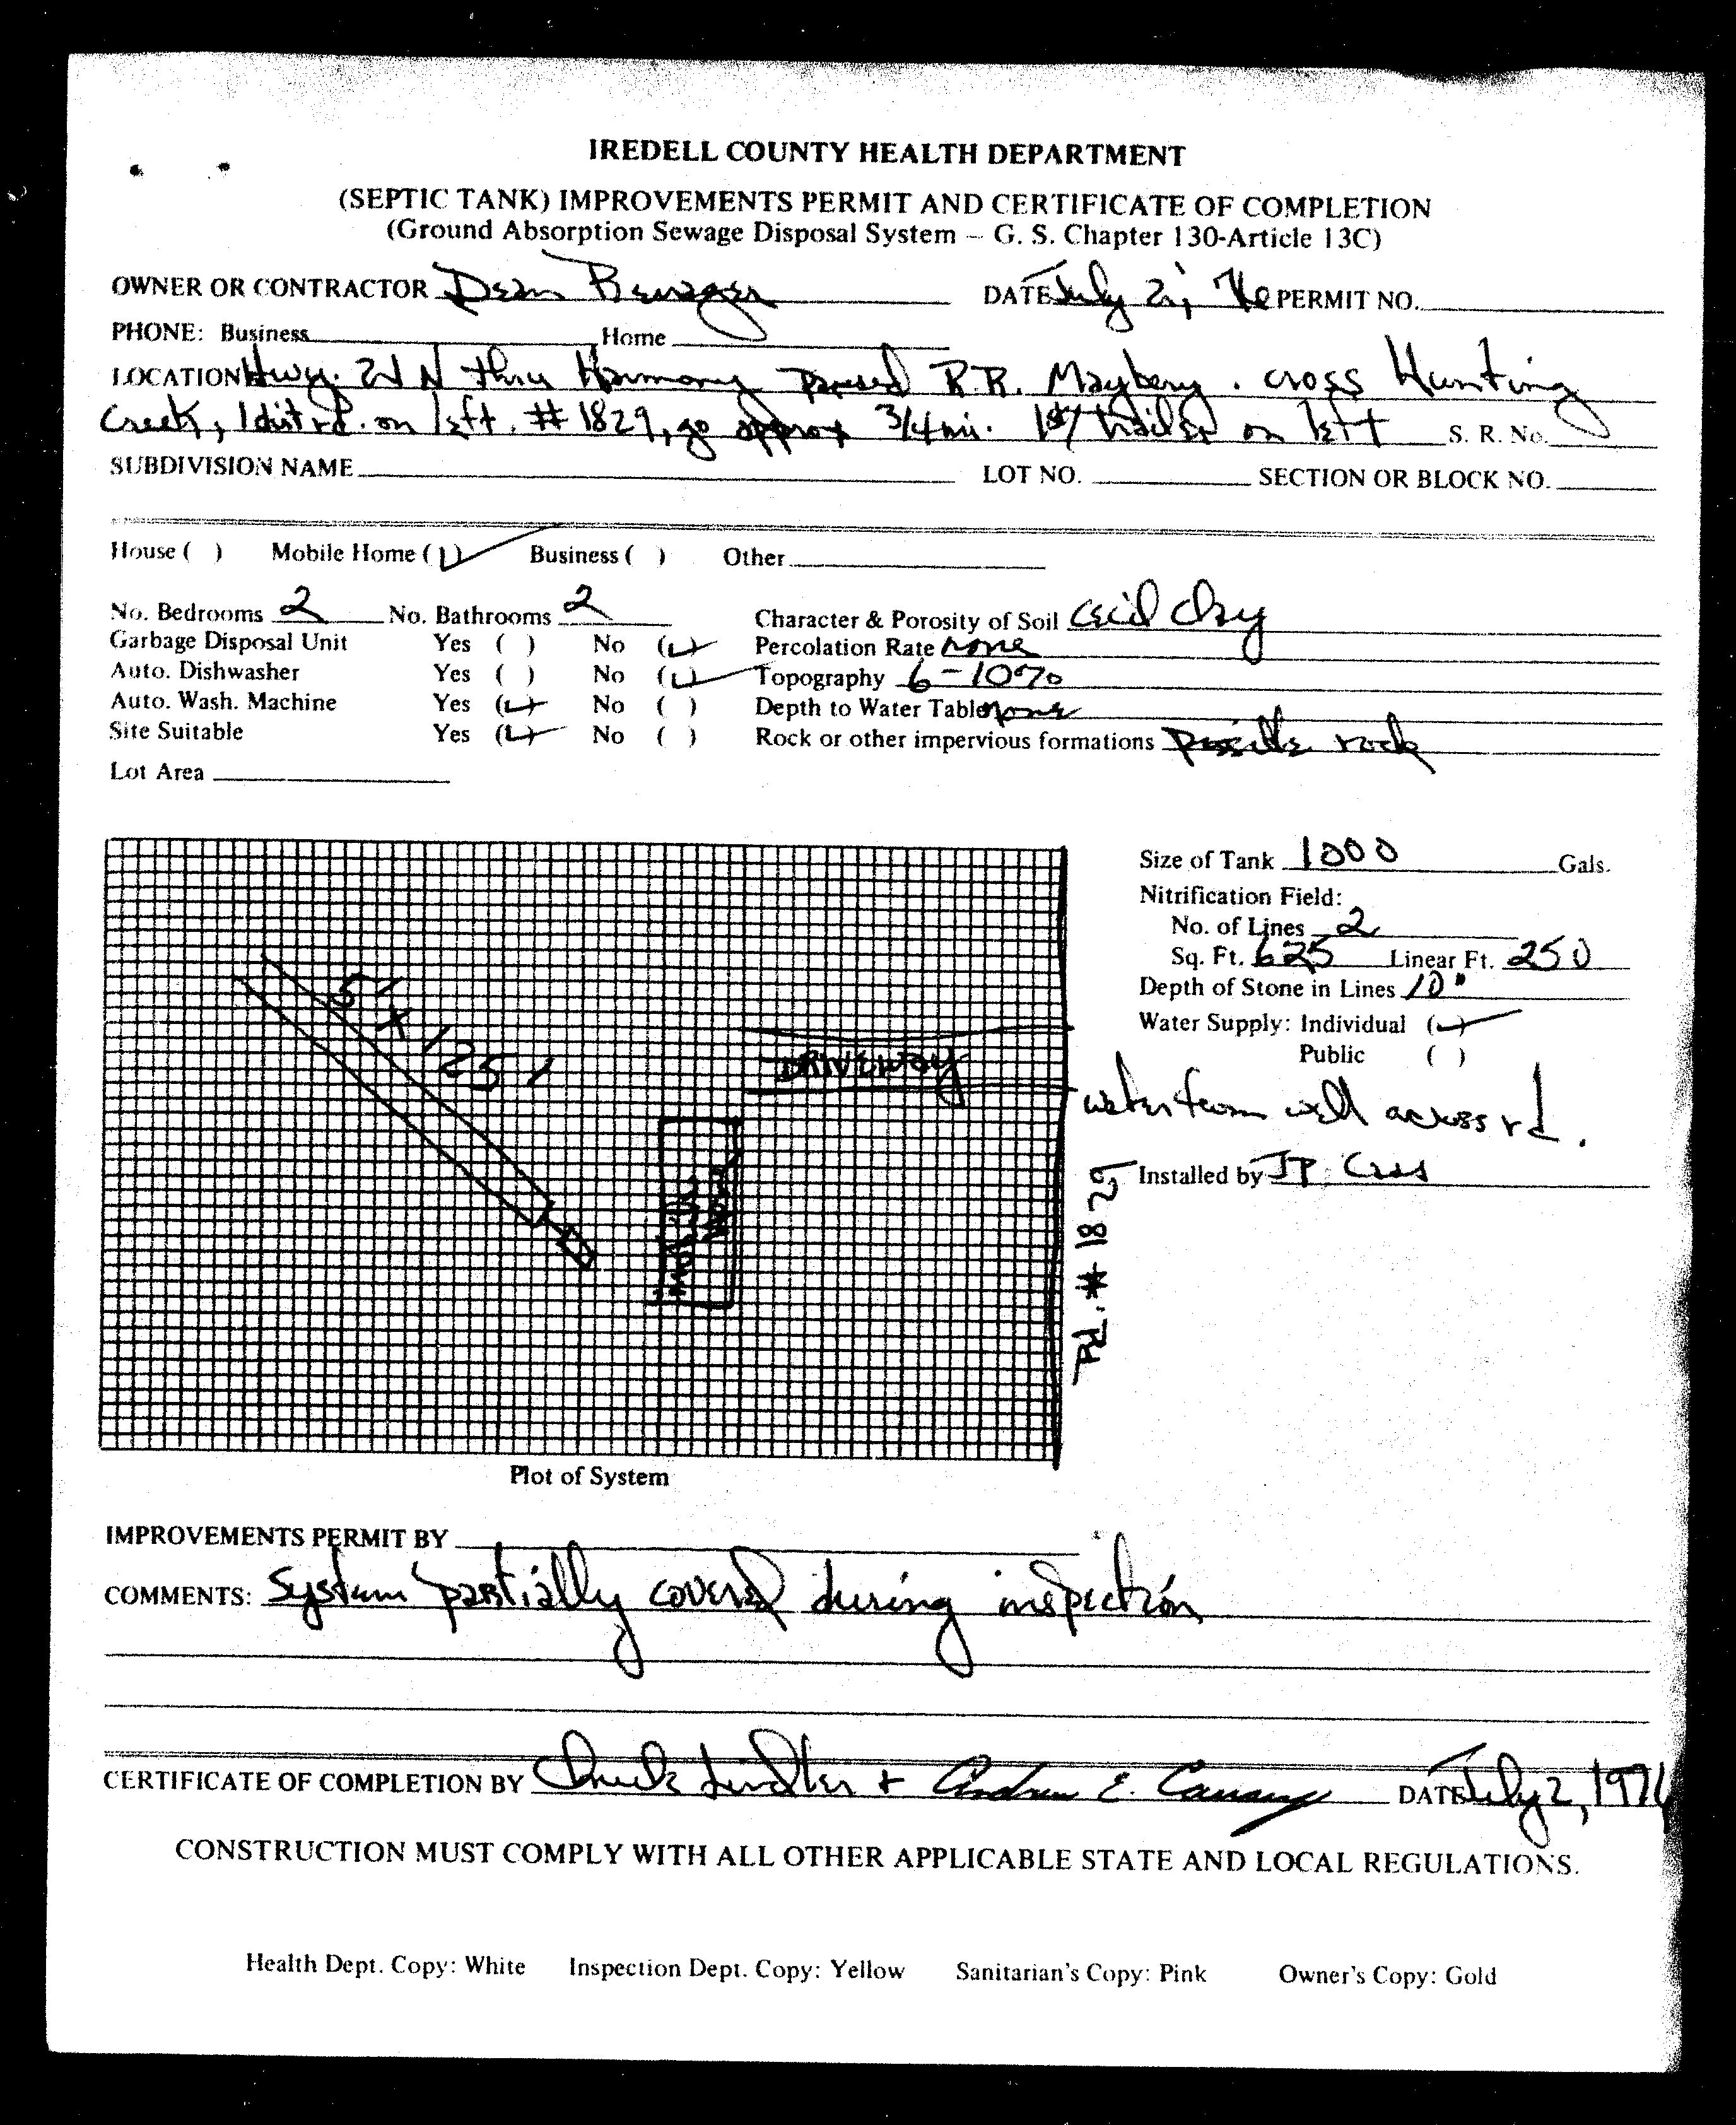 IREDELL COUNTY HEALTH DEPARTMENT
(SEPTIC TANK) IMPROVEMENTS PERMIT AND CERTIFICATE OF COMPLETION
(Ground Absorption Sewage Disposal System — G. S. Chapter 130-Article 13C)
OWNER OR CONTRACTOR Dean DATE July 2, 76 PERMIT NO.
PHONE: Business Home
LOCATION Hwy. 21 N thru Harmony passed R.R. Mayberry. cross Hunting
Creek, 1st rd. on left. # 1829, go approx 3/4 mi. 1st trailer on left S. R. No.
SUBDIVISION NAME LOT NO. SECTION OR BLOCK NO.
House ( ) Mobile Home (✓) Business ( ) Other
No. Bedrooms 2 No. Bathrooms 2 Character & Porosity of Soil Cecil Clay
Garbage Disposal Unit Yes ( ) No (✓) Percolation Rate none
Auto. Dishwasher Yes ( ) No (✓) Topography 6-10%
Auto. Wash. Machine Yes (✓) No ( ) Depth to Water Table none
Site Suitable Yes (✓) No ( ) Rock or other impervious formations possible rock
Lot Area
Size of Tank 1000 Gals.
Nitrification Field:
No. of Lines 2
Sq. Ft. 625 Linear Ft. 250
Depth of Stone in Lines 10"
Water Supply: Individual (✓)
Public ( )
water from well across rd.
Installed by JP
5' x 125'
DRIVEWAY
MOBILE
HOME
Rd. # 1829
Plot of System
IMPROVEMENTS PERMIT BY
COMMENTS: System partially covered during inspection
CERTIFICATE OF COMPLETION BY Chuck + Andrew E. DATE July 2, 1976
CONSTRUCTION MUST COMPLY WITH ALL OTHER APPLICABLE STATE AND LOCAL REGULATIONS.
Health Dept. Copy: White Inspection Dept. Copy: Yellow Sanitarian's Copy: Pink Owner's Copy: Gold